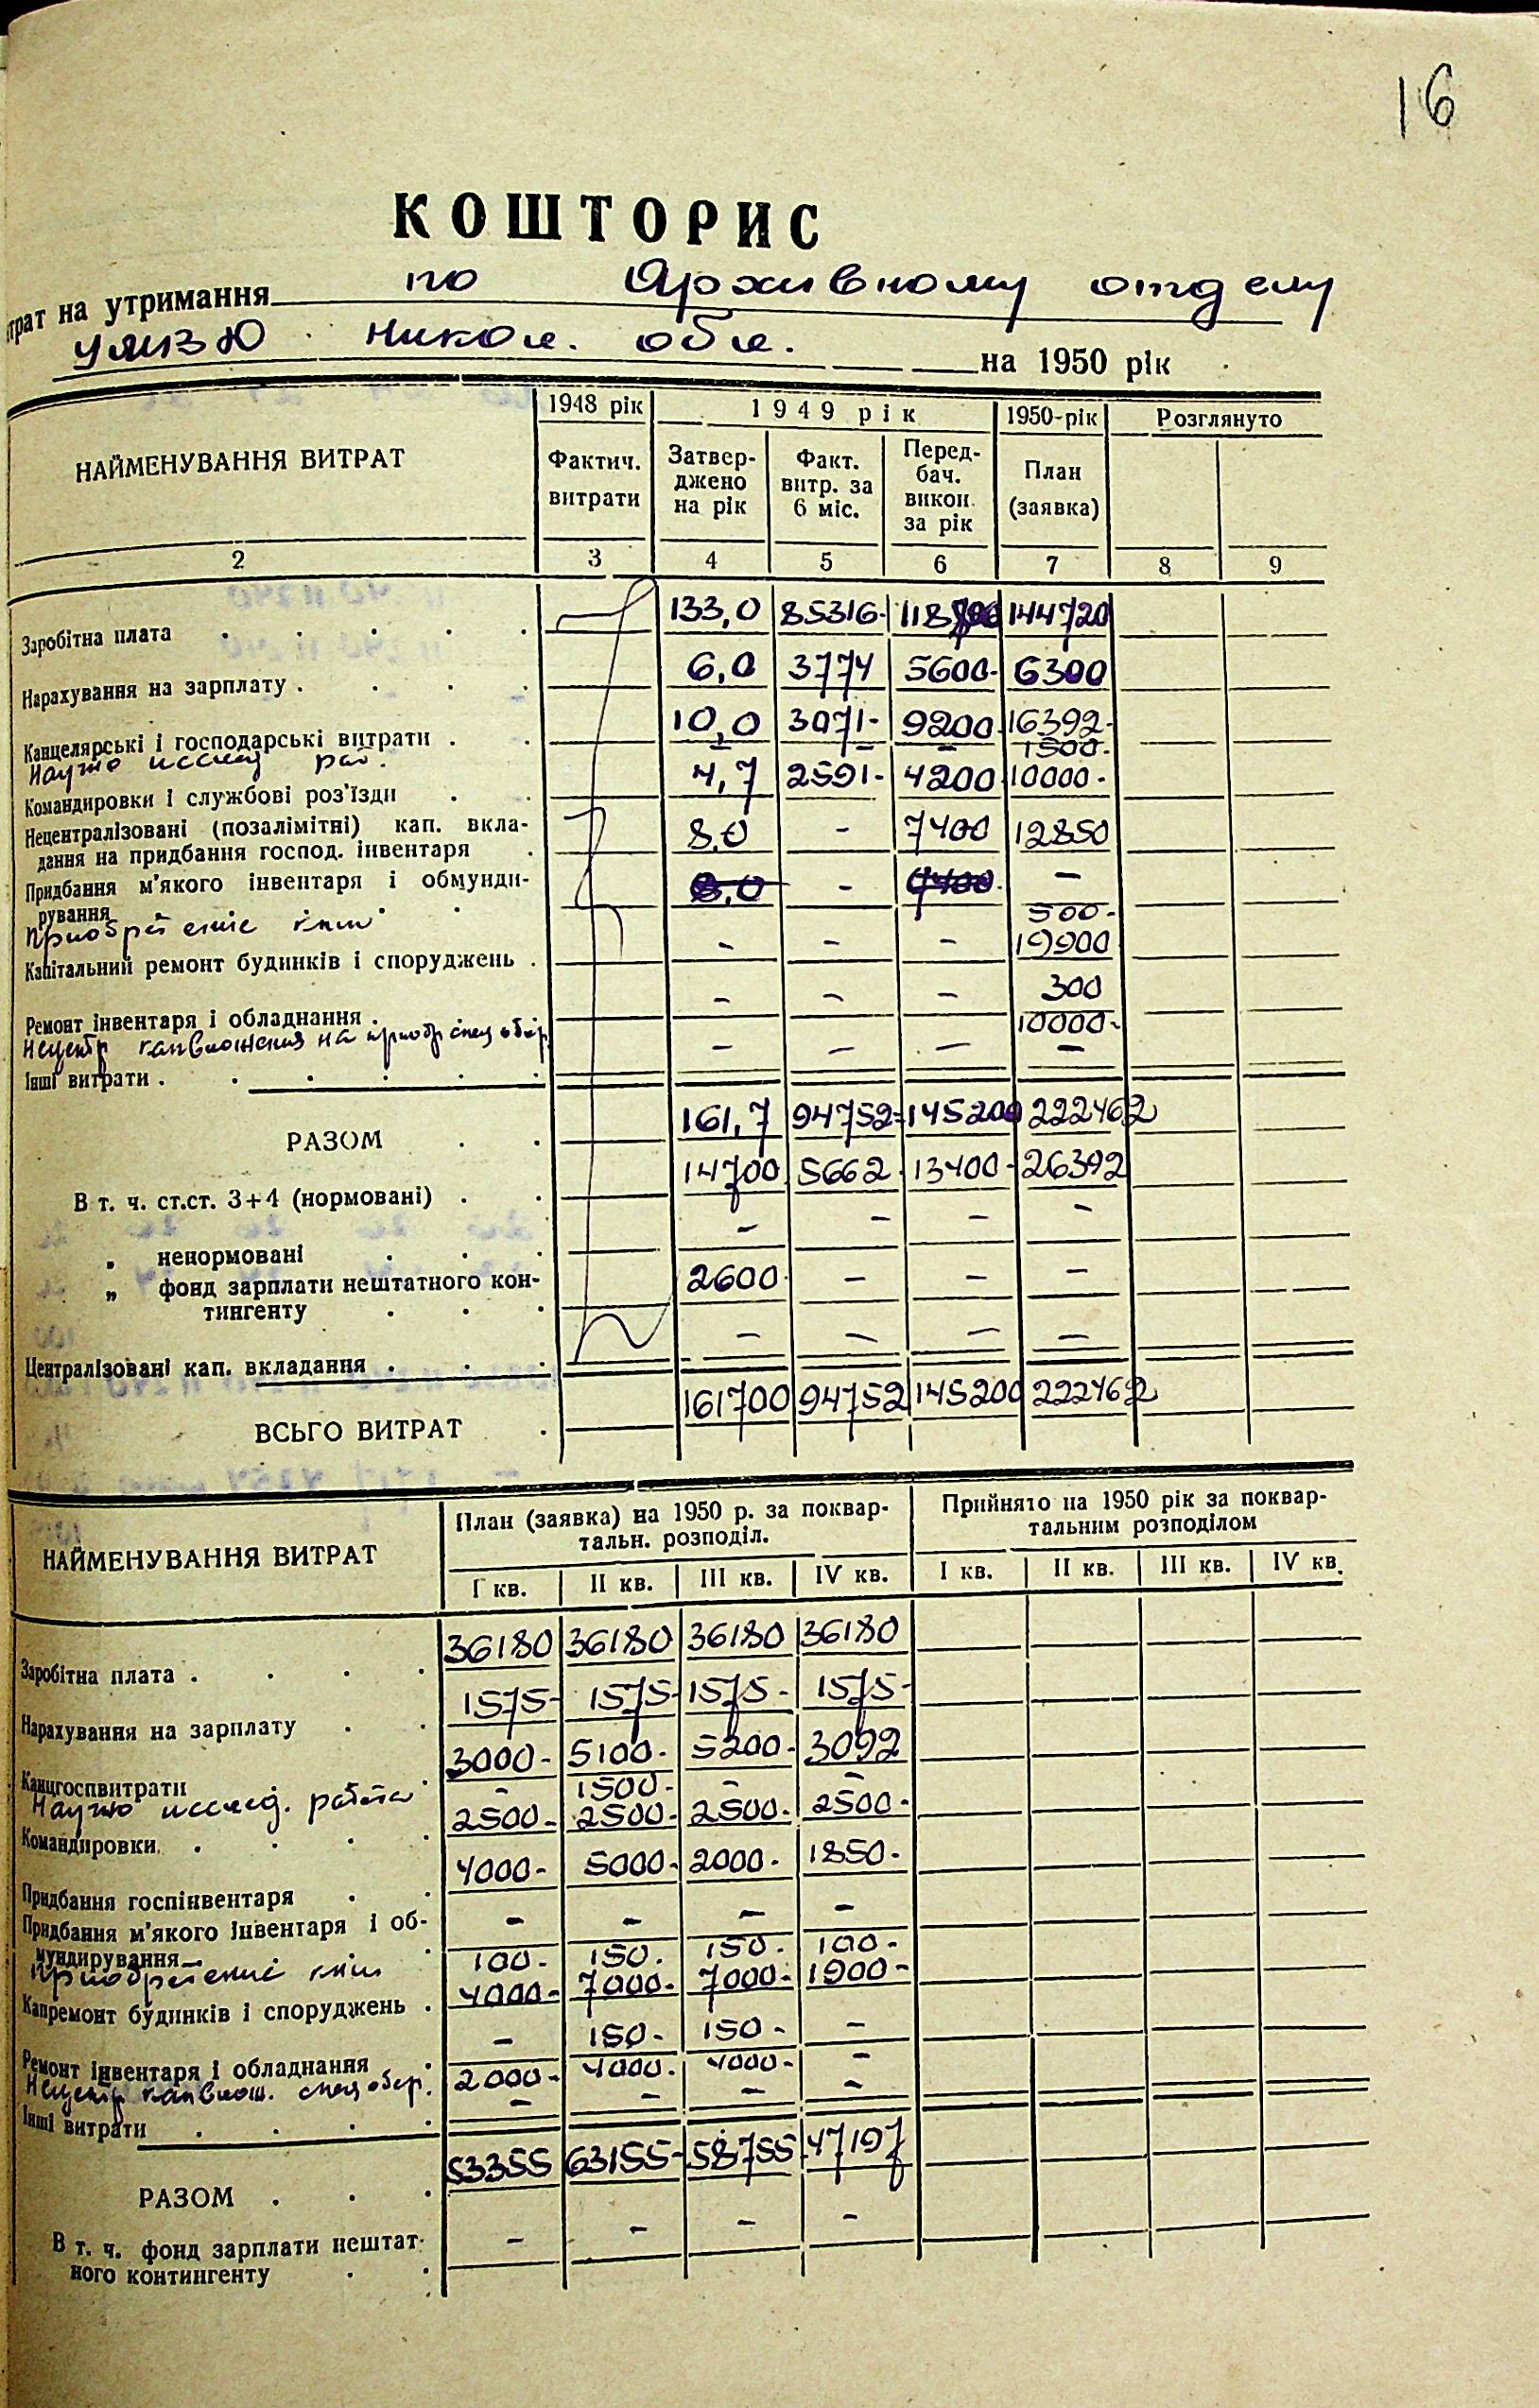 16
КОШТОРИС
трат на утримання по Архивному отделу
УМВД Никол. обл. на 1950 рік
НАЙМЕНУВАННЯ ВИТРАТ 1948 рік 1949 рік 1950-рік Розглянуто
Фактич. витрати Затвер-джено на рік Факт. витр. за 6 міс. Перед-бач. викон. за рік План (заявка)
2 3 4 5 6 7 8 9
Заробітна плата 133,0 85316- 144720
Нарахування на зарплату 6,0 3774 5600- 6300
Канцелярські і господарські витрати 10,0 3071- 9200 16392-
Научно исслед раб. 1500-
Командировки і службові роз'їзди 4,7 2591- 4200 10000-
Нецентралізовані (позалімітні) кап. вкла-
дання на придбання господ. інвентаря 8,0 - 7400 12850
Придбання м'якого інвентаря і обмунди-
рування 8,0 - 7400 -
Приобретение книг 500-
Капітальний ремонт будинків і споруджень - - - 19900
Ремонт інвентаря і обладнання - - - 300
Нецентр капвложения на приобр спец обор 10000-
Інші витрати - - - -
РАЗОМ 161,7 94752= 145200 222462
В т. ч. ст.ст. 3+4 (нормовані) 14700 5662 13400- 26392
„ ненормовані - - - -
„ фонд зарплати нештатного кон-
тингенту 2600 - - -
Централізовані кап. вкладання - - - -
ВСЬГО ВИТРАТ 161700 94752 145200 222462
НАЙМЕНУВАННЯ ВИТРАТ План (заявка) на 1950 р. за поквар-тальн. розподіл. Прийнято на 1950 рік за поквар-тальним розподілом
І кв. ІІ кв. ІІІ кв. IV кв. І кв. ІІ кв. ІІІ кв. IV кв.
Заробітна плата 36180 36180 36180 36180
Нарахування на зарплату 1575- 1575- 1575- 1575-
Канцгоспвитрати 3000- 5100- 5200- 3092
Научно исслед. работа - 1500- - -
Командировки 2500- 2500- 2500- 2500-
Придбання госпінвентаря 4000- 5000- 2000- 1850-
Придбання м'якого інвентаря і об-
мундирування - - - -
Приобретение книг 100- 150- 150- 100-
Капремонт будинків і споруджень 4000- 7000- 7000- 1900-
Ремонт інвентаря і обладнання - 150- 150- -
Нецентр капвлож. спец обор. 2000- 4000- 4000- -
Інші витрати - - - -
РАЗОМ 53355 63155- 58755 47197
В т. ч. фонд зарплати нештат-
ного контингенту - - - -